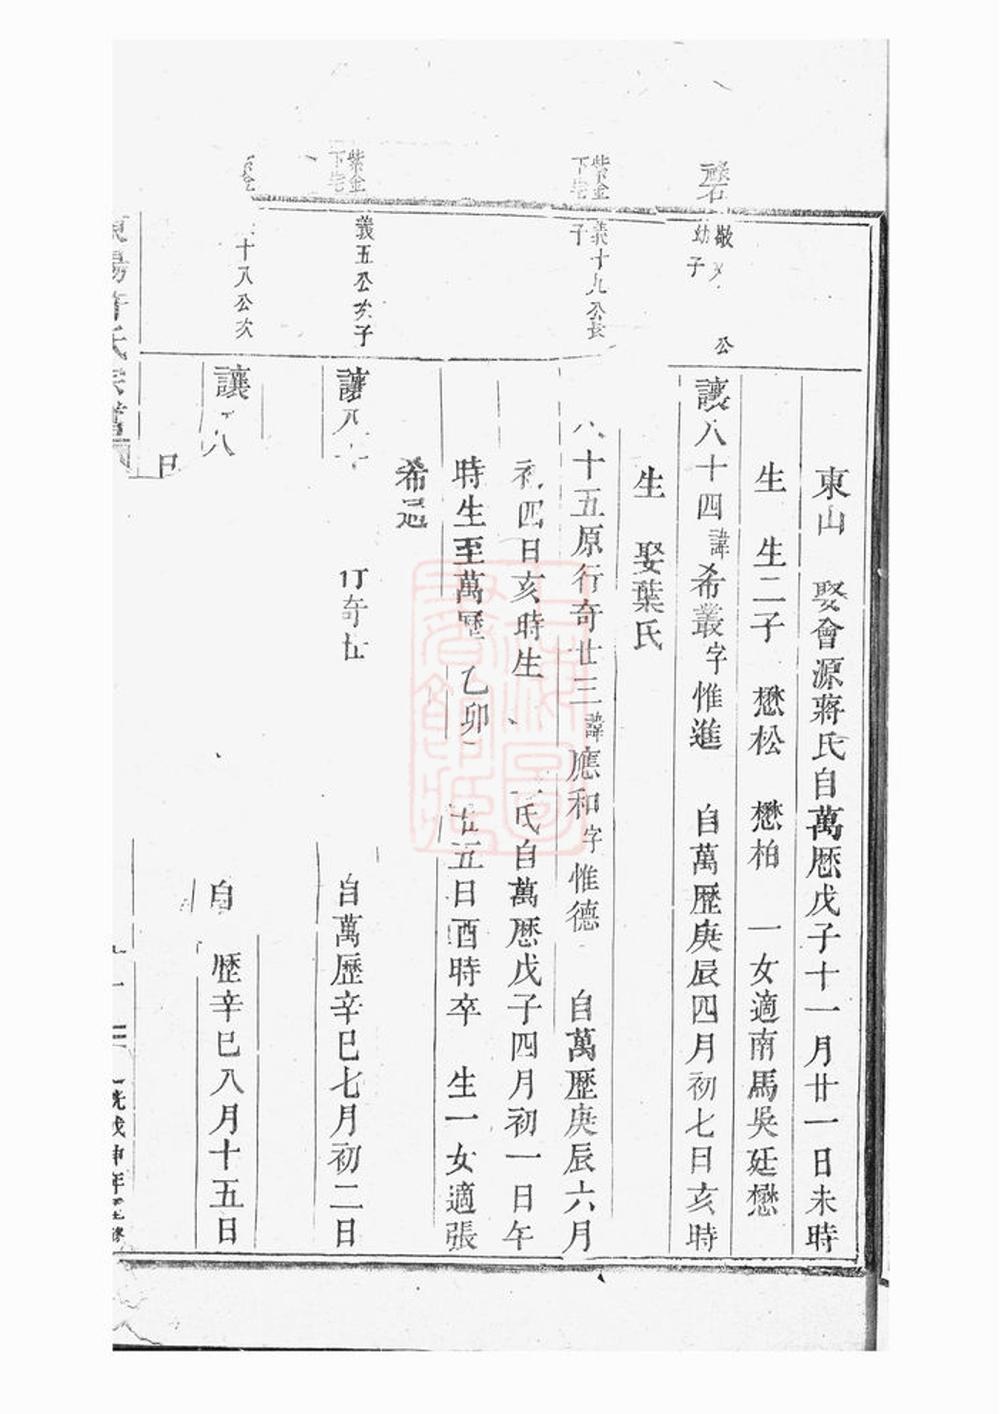 東山　娶會源蔣氏自萬厯戊子十一月廿一日未時
生　生二子　懋松　懋柏　一女適南馬吳廷懋
幼子
公
讓八十四諱希叢字惟進　自萬歷庚辰四月初七日亥時
生　娶葉氏
紫金
下宅
義十九公長
子
八十五原行奇廿三諱應和字惟德　自萬歷庚辰六月
初四日亥時生　氏自萬厯戊子四月初一日午
時生至萬歷乙卯　五日酉時卒　生一女適張
希
紫金
下宅
義五公次子
讓八十
行奇廿
自萬歷辛巳七月初二日
十八公次
讓　八
自　歷辛巳八月十五日
日
東陽許氏宗譜